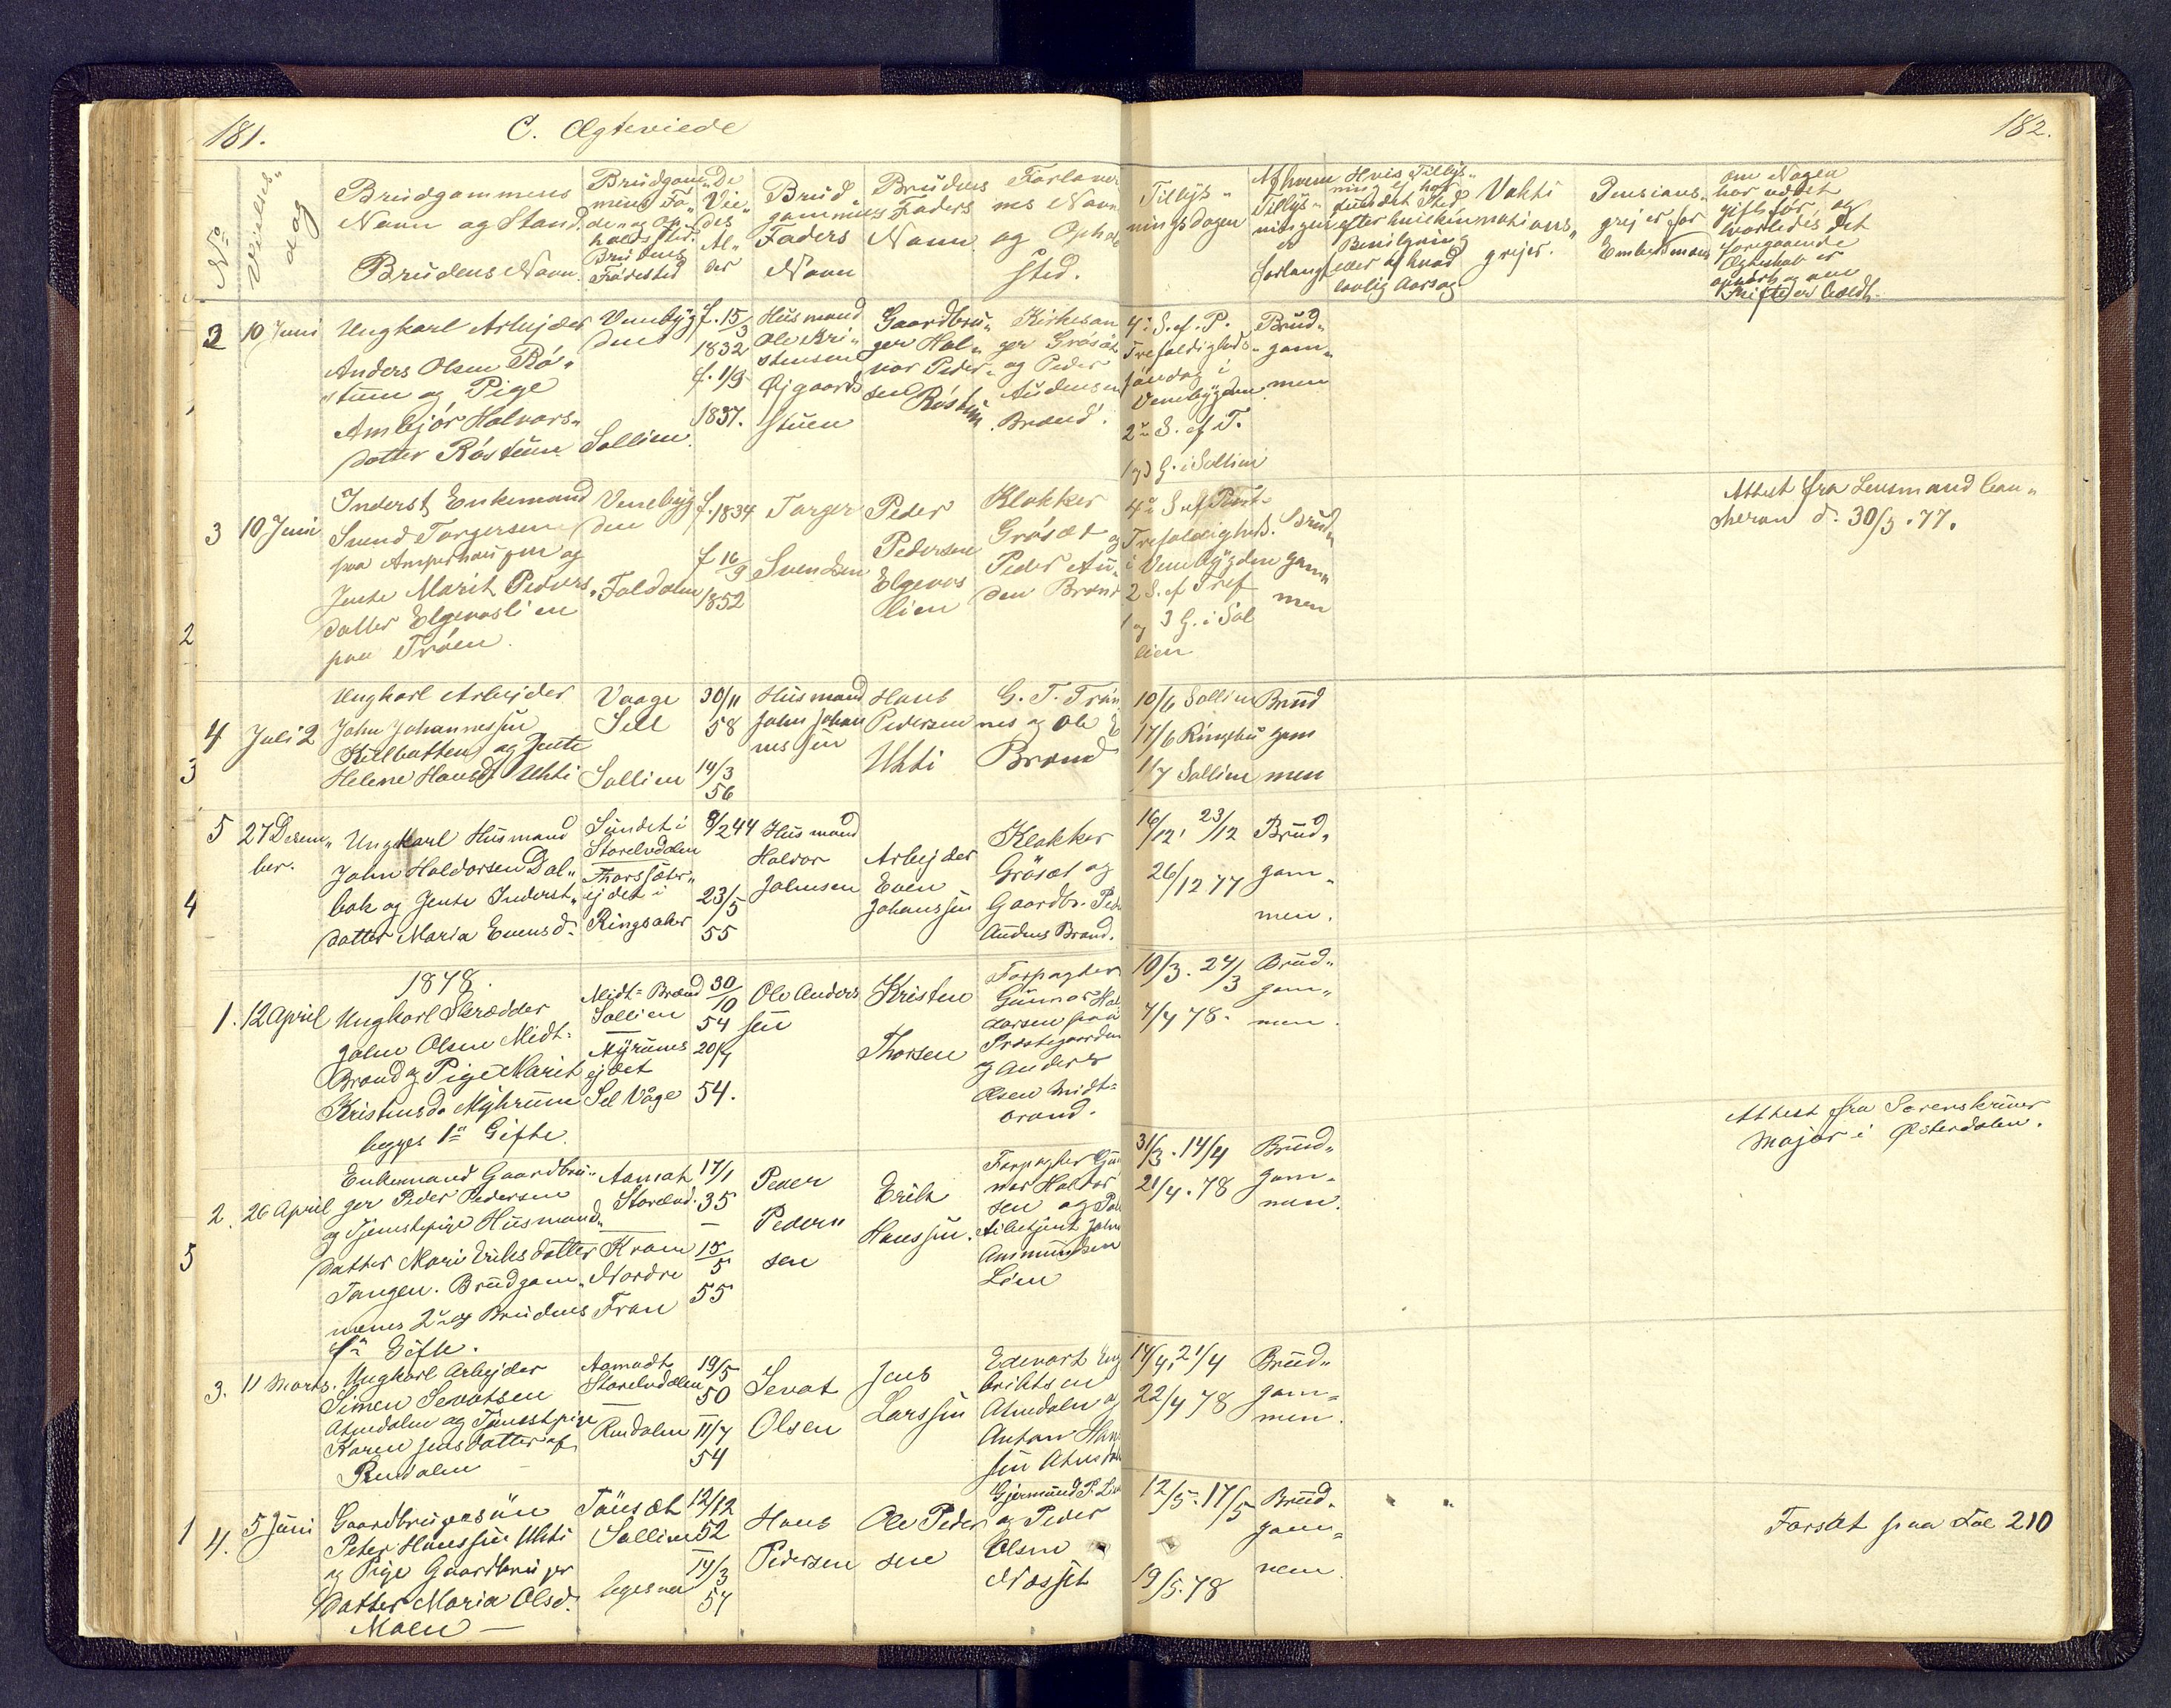 181.
C. Ægteviede
182.
No
Vielses-
dag
Brudgammens
Navn og Stand.
Brudens Navn.
Brudgam-
mens Fø-
de- og Op-
holdssted.
Brudens
Fødested
De
Vie-
des
Al-
der
Brud-
gammens
Faders
Navn
Brudens
Faders
Navn
Forlover-
nes Navn
og Ophol
sted.
Tillys-
ningsdagen
Af hvem
Tillys-
ningen
er
forlangt
Hvis Tillys-
ning ej har
fundet Sted
efter hvilken
Bevilgning
eller af hvad
lovlig Aarsag
Vakci-
nations-
grejer.
Pensions-
grejer for
Embedsmænd
om Nogen
har været
gift før og
hvorledes det
foregaaende
Ægteskab er
ophørt og om
skiftet er holdt.
2
10 Juni
Ungkarl Arbejder
Anders Olsen Rø-
stum og Pige
Ambjør Halvors-
datter Røstum
Venebyg
den
Sollien.
f. 15/3
1832
f. 1/9
1837.
Husmand
Ole Kri-
stensen
Øjgaards
stuen
Gaardbru-
ger Hal-
vor Peder-
sen Røstum
Kirkesan
ger Grøsæt
og Peder
Audensen
Brænd.
4: S. ef. P.
Trefoldigheds-
søndag i
Venebygden
2: S. ef. T.
og 3 G. i Sollien
Brud-
gam-
men
3
10 Juni
Inderst Enkemand
Svend Torgersen
paa Amperhaugen og
Jente Marit Peders-
datter Elgevasli en
paa Trøen.
Venebyg
den
Foldalen
f. 1834
f 16/9
1852
Torger
Svendsen
Peder
Pedersen
Elgevas
lien
Klokker
Grøsæt og
Peder Au-
den Brænd
4: S. ef Paast-
Trefoldigheds.
i Venebygden
2 S. ef Tref
og 3 G. i Sol
lien
Brud-
gam-
men
Attest fra Lensmand
d. 30/3. 77.
2
4
3
Juli 2
Ungkarl Arbejder
John Johannessen
og Jente
Helene Hansd. Uhti
Vaage
Sell
Sollien
30/11
58
14/3
56
Husmand
John Johan
nessen
Hans
Pedersen
Uhti
G. T. Trøn
nes og Ole E
Brænd
10/6 Sollien
17/6 Ringebu
1/7 Sollien
Brud
gam
men
5
4
27 Decem-
ber.
Ungkarl Husmand
John Haldorsen Dal-
bak og Jente Inderst-
datter Maria Evensd.
Sundet i
Storelvdalen
ejdet i
Ringsaker
8/2 44
23/5
55
Husmand
Haldor
Johnsen
Arbejder
Even
Johanssen
Klokker
Grøsæt og
Gaardbr. Ped
Audens Brænd.
16/12, 23/12
26/12 77
Brud-
gam-
men.
1878.
1.
12 April
Ungkarl Skrædder
John Olsen Midt-
Brænd og Pige Marit
Kristensd. Myhrum
begges 1ste Gifte.
Midt-Brænd
Sollien
Myrumes
ejdet
Sel Våge
30/10
54
20/7
54.
Ole Anders
sen
Kristen
Thorsen
Forpagter
Gunnar Hal
dorsen paa
Præstegaarden
og Anders
Olsen Midt-
brænd.
10/3. 24/3
7/4 78.
Brud-
gam-
men.
2.
5
26 April
Enkemand Gaardbru-
ger Peder Pedersen
og Tjenstepige Husmands
datter Mari Eriksdatter
Tangen. Brudgam-
mens 2: og Brudens
1ste Gifte.
Aamot
Storelvd.
Kram
Nordre
Tron
17/1
35
15/5
55
Peder
Peder-
sen
Erik
Hanssen.
Forpagter Gun
nar Haldor
sen og
Arbejder John
Amundsen
Lien
31/3. 14/4
21/4. 78
Brud-
gam-
men.
Attest fra Sorenskriver
Major i Østerdalen.
3.
11 Marts.
Ungkarl Arbejder
Simen Sevatsen
Atnedalen og Tjenestepige
Karen Jensdatter af
Rendalen
Aamodt
Storelvdalen
Rendalen
19/5
50
11/7
54
Sevat
Olsen
Jens
Larssen
Edevart Eng
brihtsen
Atnedalen og
Anton Han
sen
14/4, 21/4
22/4 78
Brud-
gam-
men.
1
4.
5 Juni
Gaardbrugersøn
Peter Hanssen Uhti
og Pige Gaardbruger
datter Maria Olsd.
Moen
Tønsæt
Sollien
12/12
52
14/3
57
Hans
Pedersen
Ole Peder
sen
Gjermund P. Lien
og Peder
Olsen
Næsset
12/5. 17/5
19/5. 78
Brud-
gam-
men.
Forsat paa Fol 210